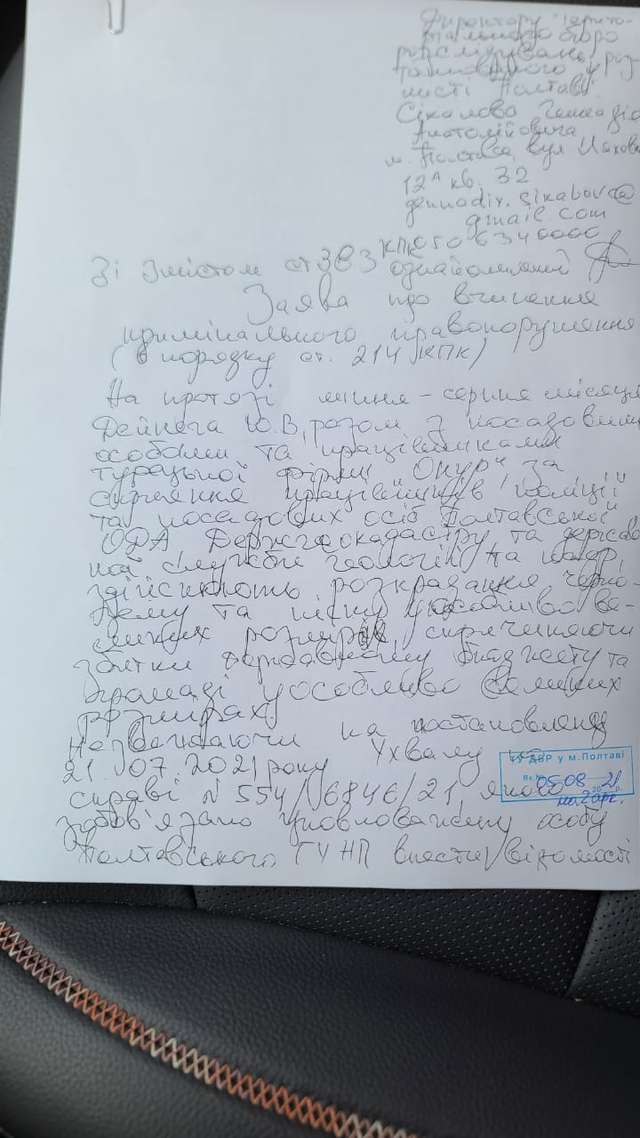 Директору Терито-
ріального бюро
розслідувань, роз
ташованого у
місті Полтаві
Сікалова Геннадія
Анатолійовича
м. Полтава, вул
12А кв. 32
gennadiy.sikalov@
gmail.com
050 6340000
Зі змістом ст 383 КПК ознайомлений
Заява про вчинення
кримінального правопорушення
(в порядку ст. 214 КПК)
На протязі липня-серпня місяця
Дейнега Ю.В, разом з посадовими
особами та працівниками
турецької фірми "Онур", за
сприяння працівників поліції
та посадових осіб Полтавської
ОДА Держгеокадастру та держав
ної служби геології та надр,
здійснюють розкрадання чорно-
зему та піску у особливо ве-
ликих розмірах, спричиняючи
збитки державному бюджету та
громаді у особливо великих
розмірах.
Незважаючи на постановлену
21.07.2021 року Ухвалу
справі №554/6846/21, якою
зобов'язано уповноважену особу
Полтавського ГУНП внести відомості
ТУ ДБР у м.Полтаві
05-08 21
на 2 арк.